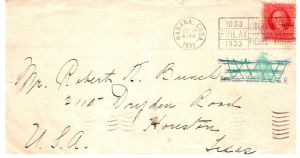 HABANA, CUBA
1933
FINLAY
1933
Mr. Robert K. Bunch
2110 Dryden Road
Houston
Texas
U.S.A.